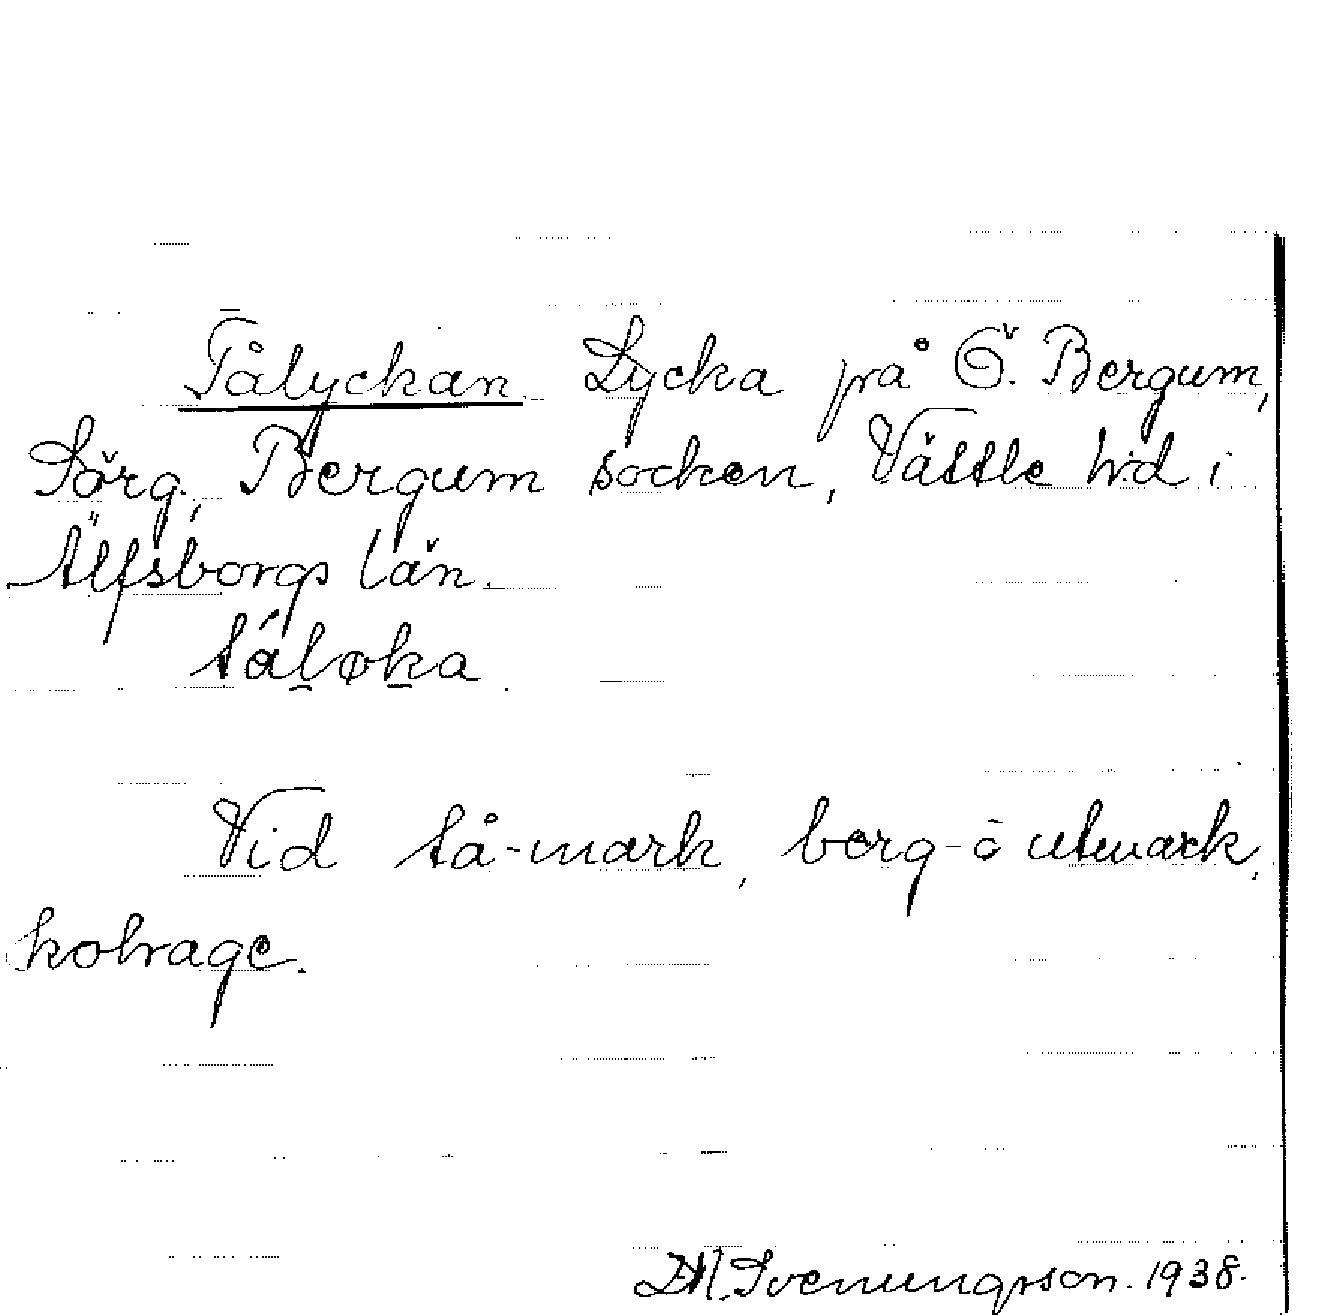 Tålyckan Lycka på Ö. Bergum,
Sörg, Bergum socken, Vättle hd i
Älfsborgs län.
tåløka
Vid tå-mark, berg- o utmark,
hohvage.
Svenungsson. 1938.